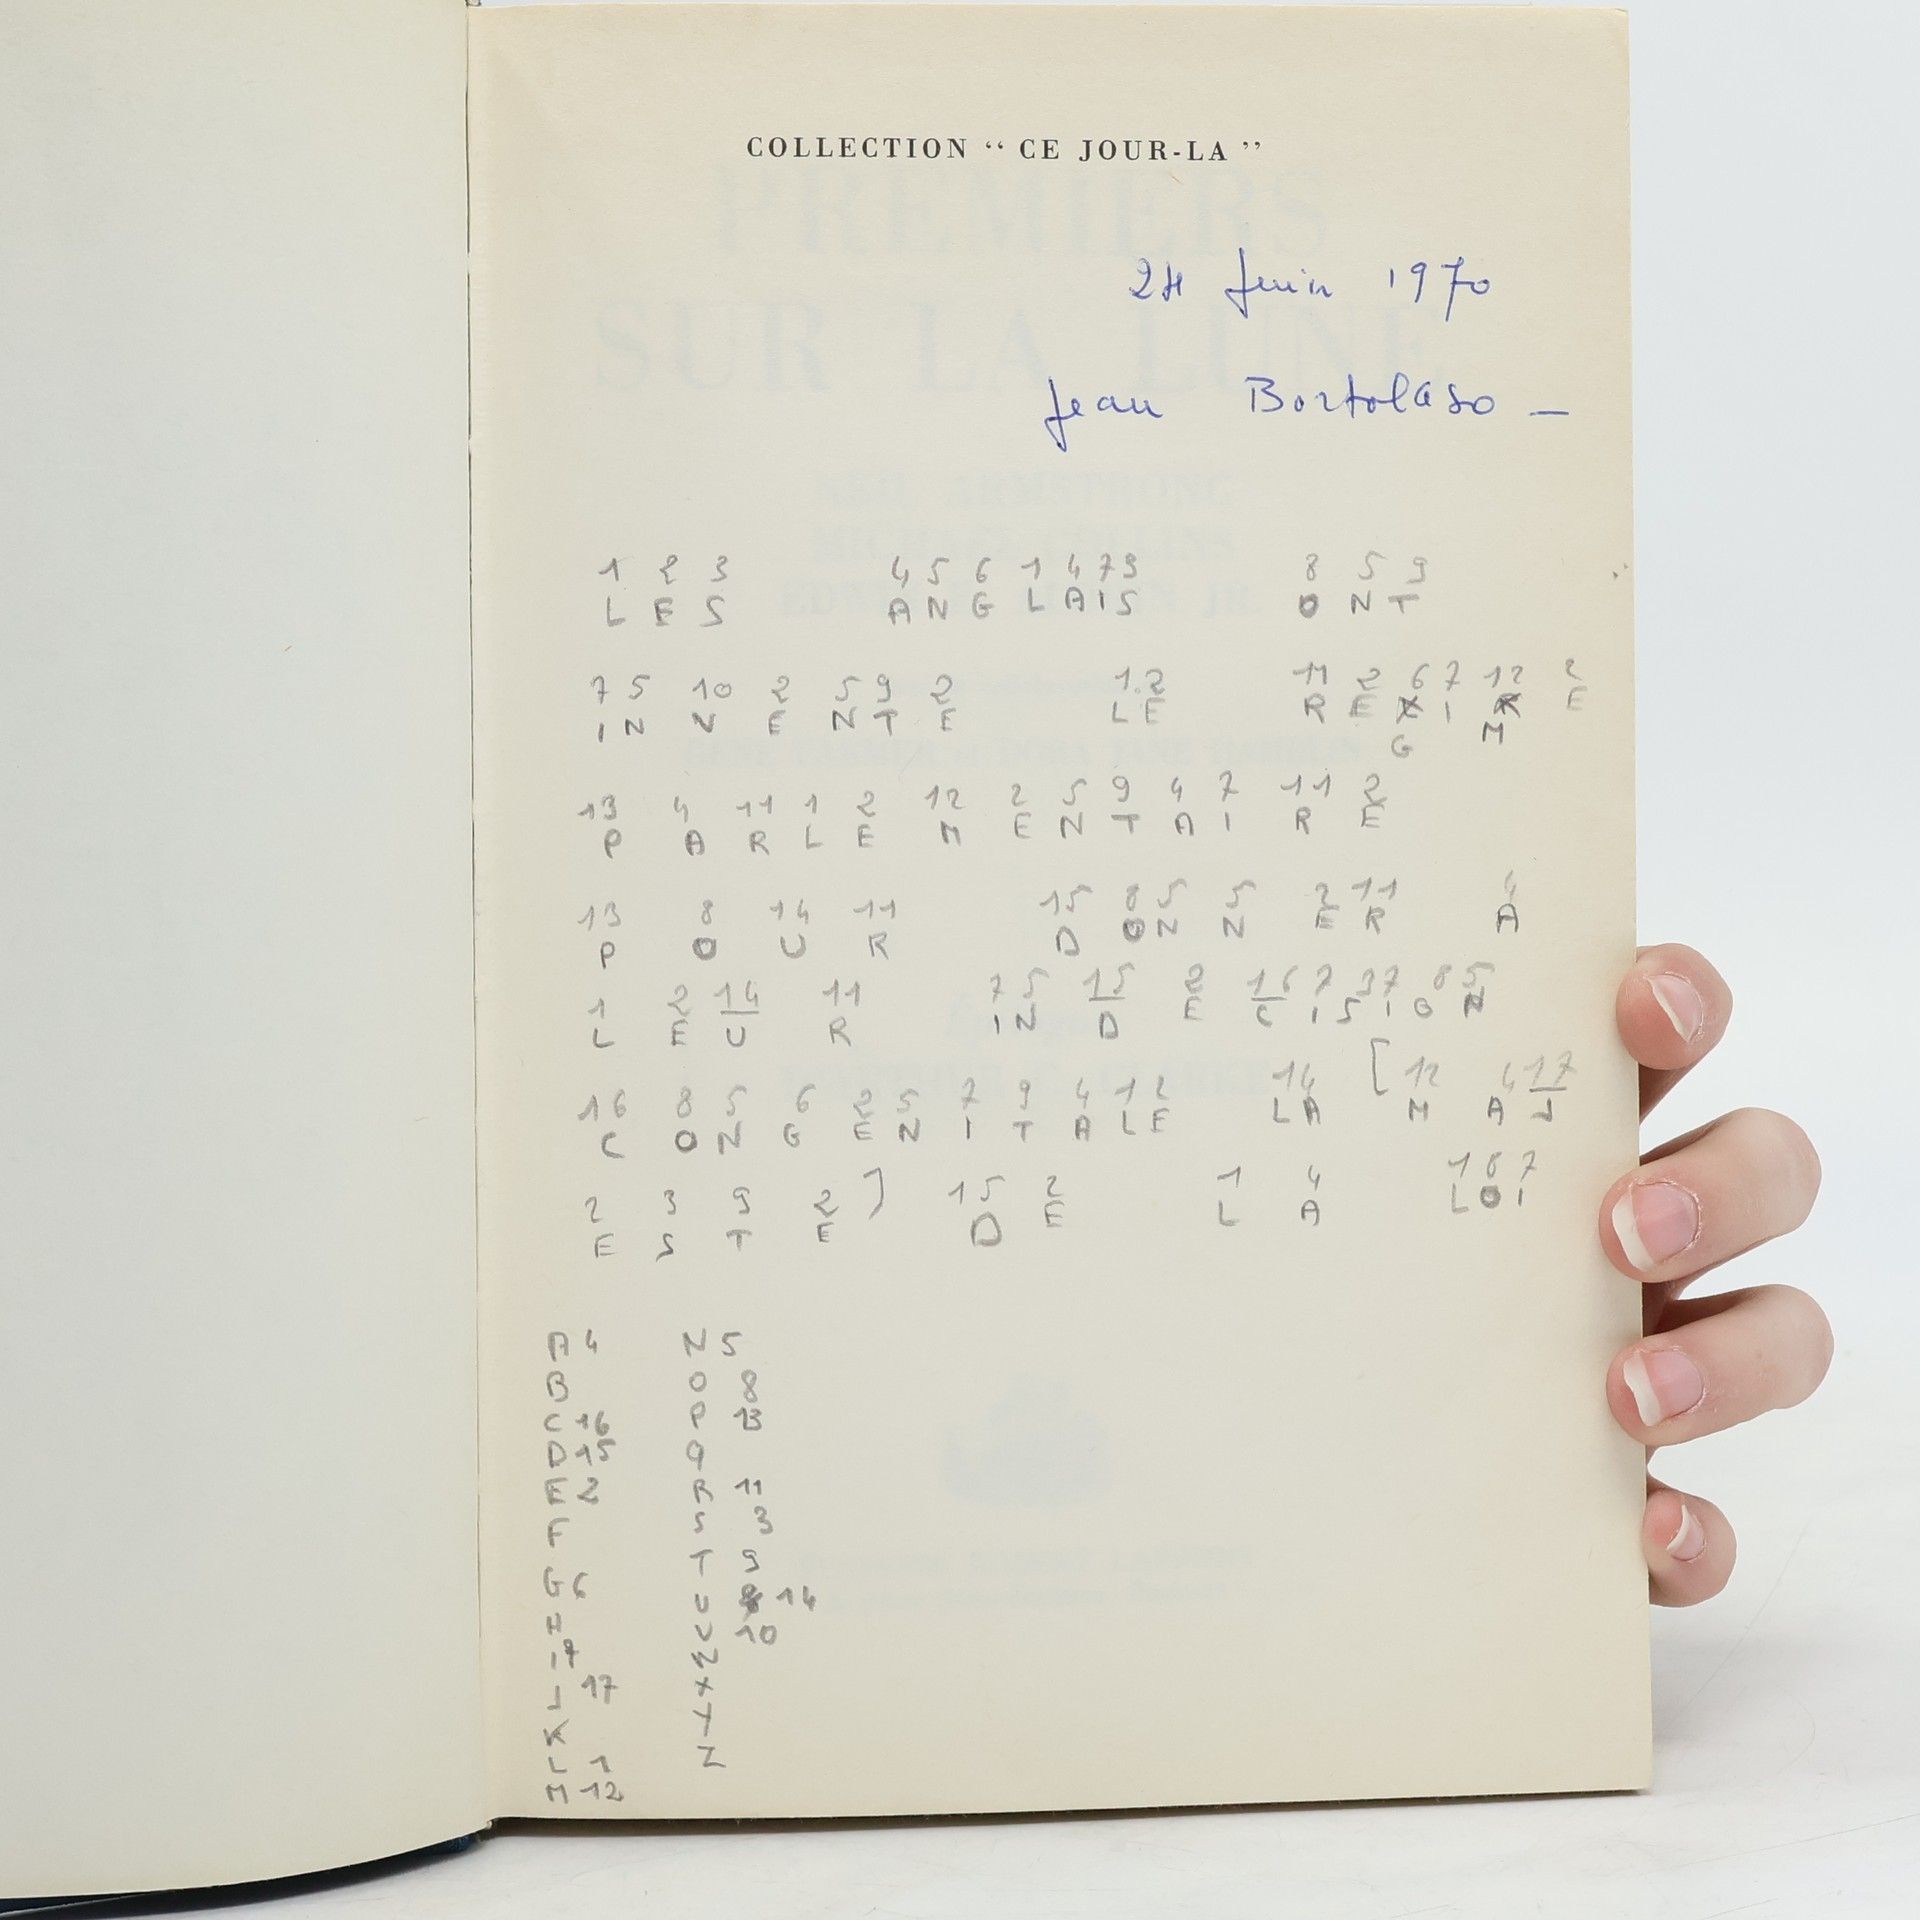 COLLECTION “ CE JOUR-LA ”
PREMIERS
SUR LA LUNE
24 Juin 1970
Jean Bortolaso –
1 2 3 4 5 6 1 4 7 3 8 5 9
L E S A N G L A I S O N T
7 5 10 2 5 9 2 1 2 11 2 6 7 12 2
I N V E N T E L E R E G I M E
13 4 11 1 2 12 2 5 9 4 7 11 2
P A R L E M E N T A I R E
13 8 14 11 15 8 5 5 2 11 4
P O U R D O N N E R A
1 2 14 11 7 5 15 2 16 7 3 7 8 5
L E U R I N D E C I S I O N
16 8 5 6 2 5 7 9 4 1 2 1 4 [ 12 4 17
C O N G E N I T A L E L A M A J
2 3 9 2 ] 15 2 1 4 1 8 7
E S T E D E L A L O I
A 4 N 5
B O 8
C 16 P 13
D 15 Q
E 2 R 11
F S 3
G 6 T 9
H U 14
I 7 V 10
J 17 W
K X
L 1 Y
M 12 Z